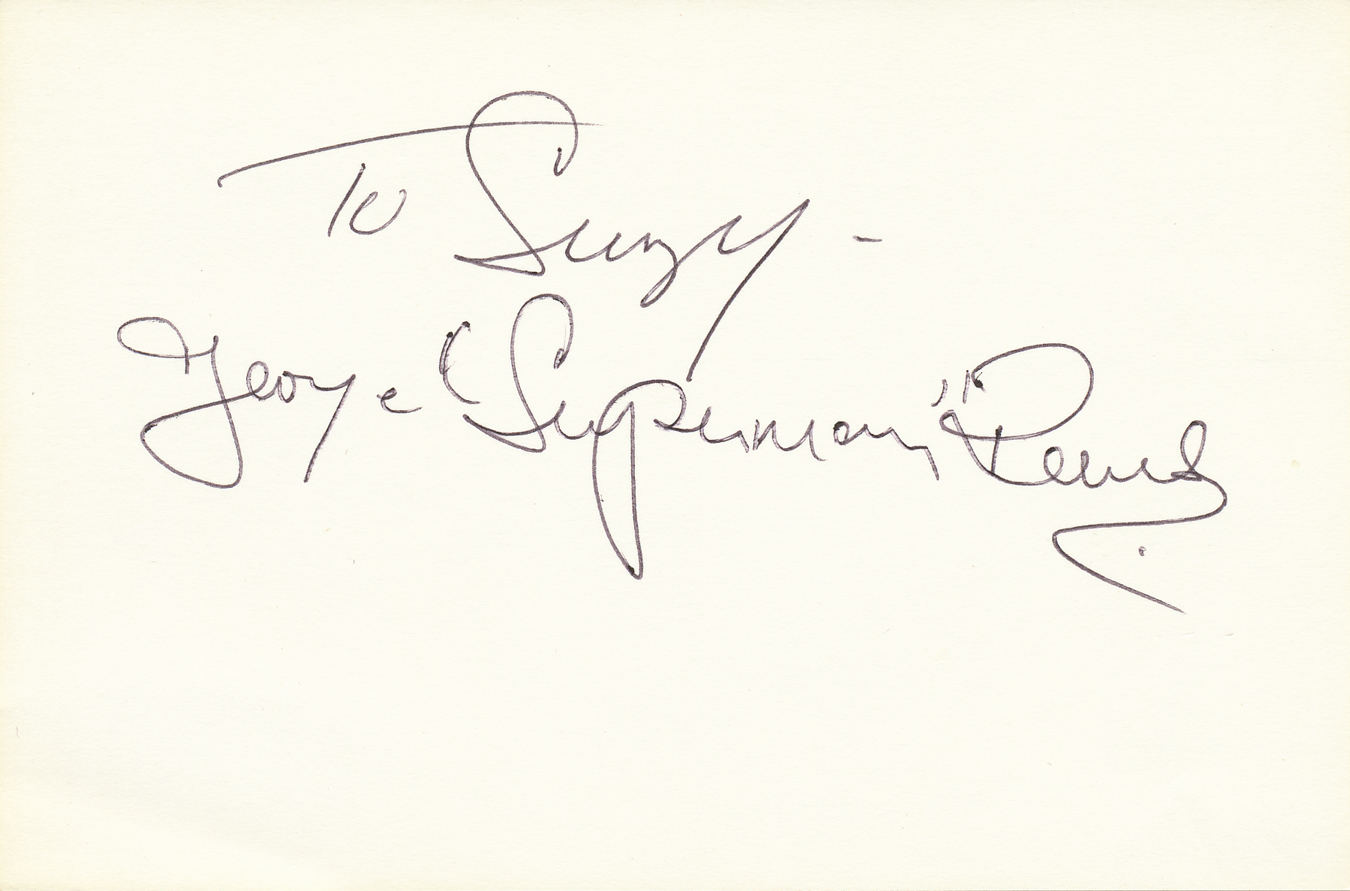 To Suzy -
George "Superman" Reeves